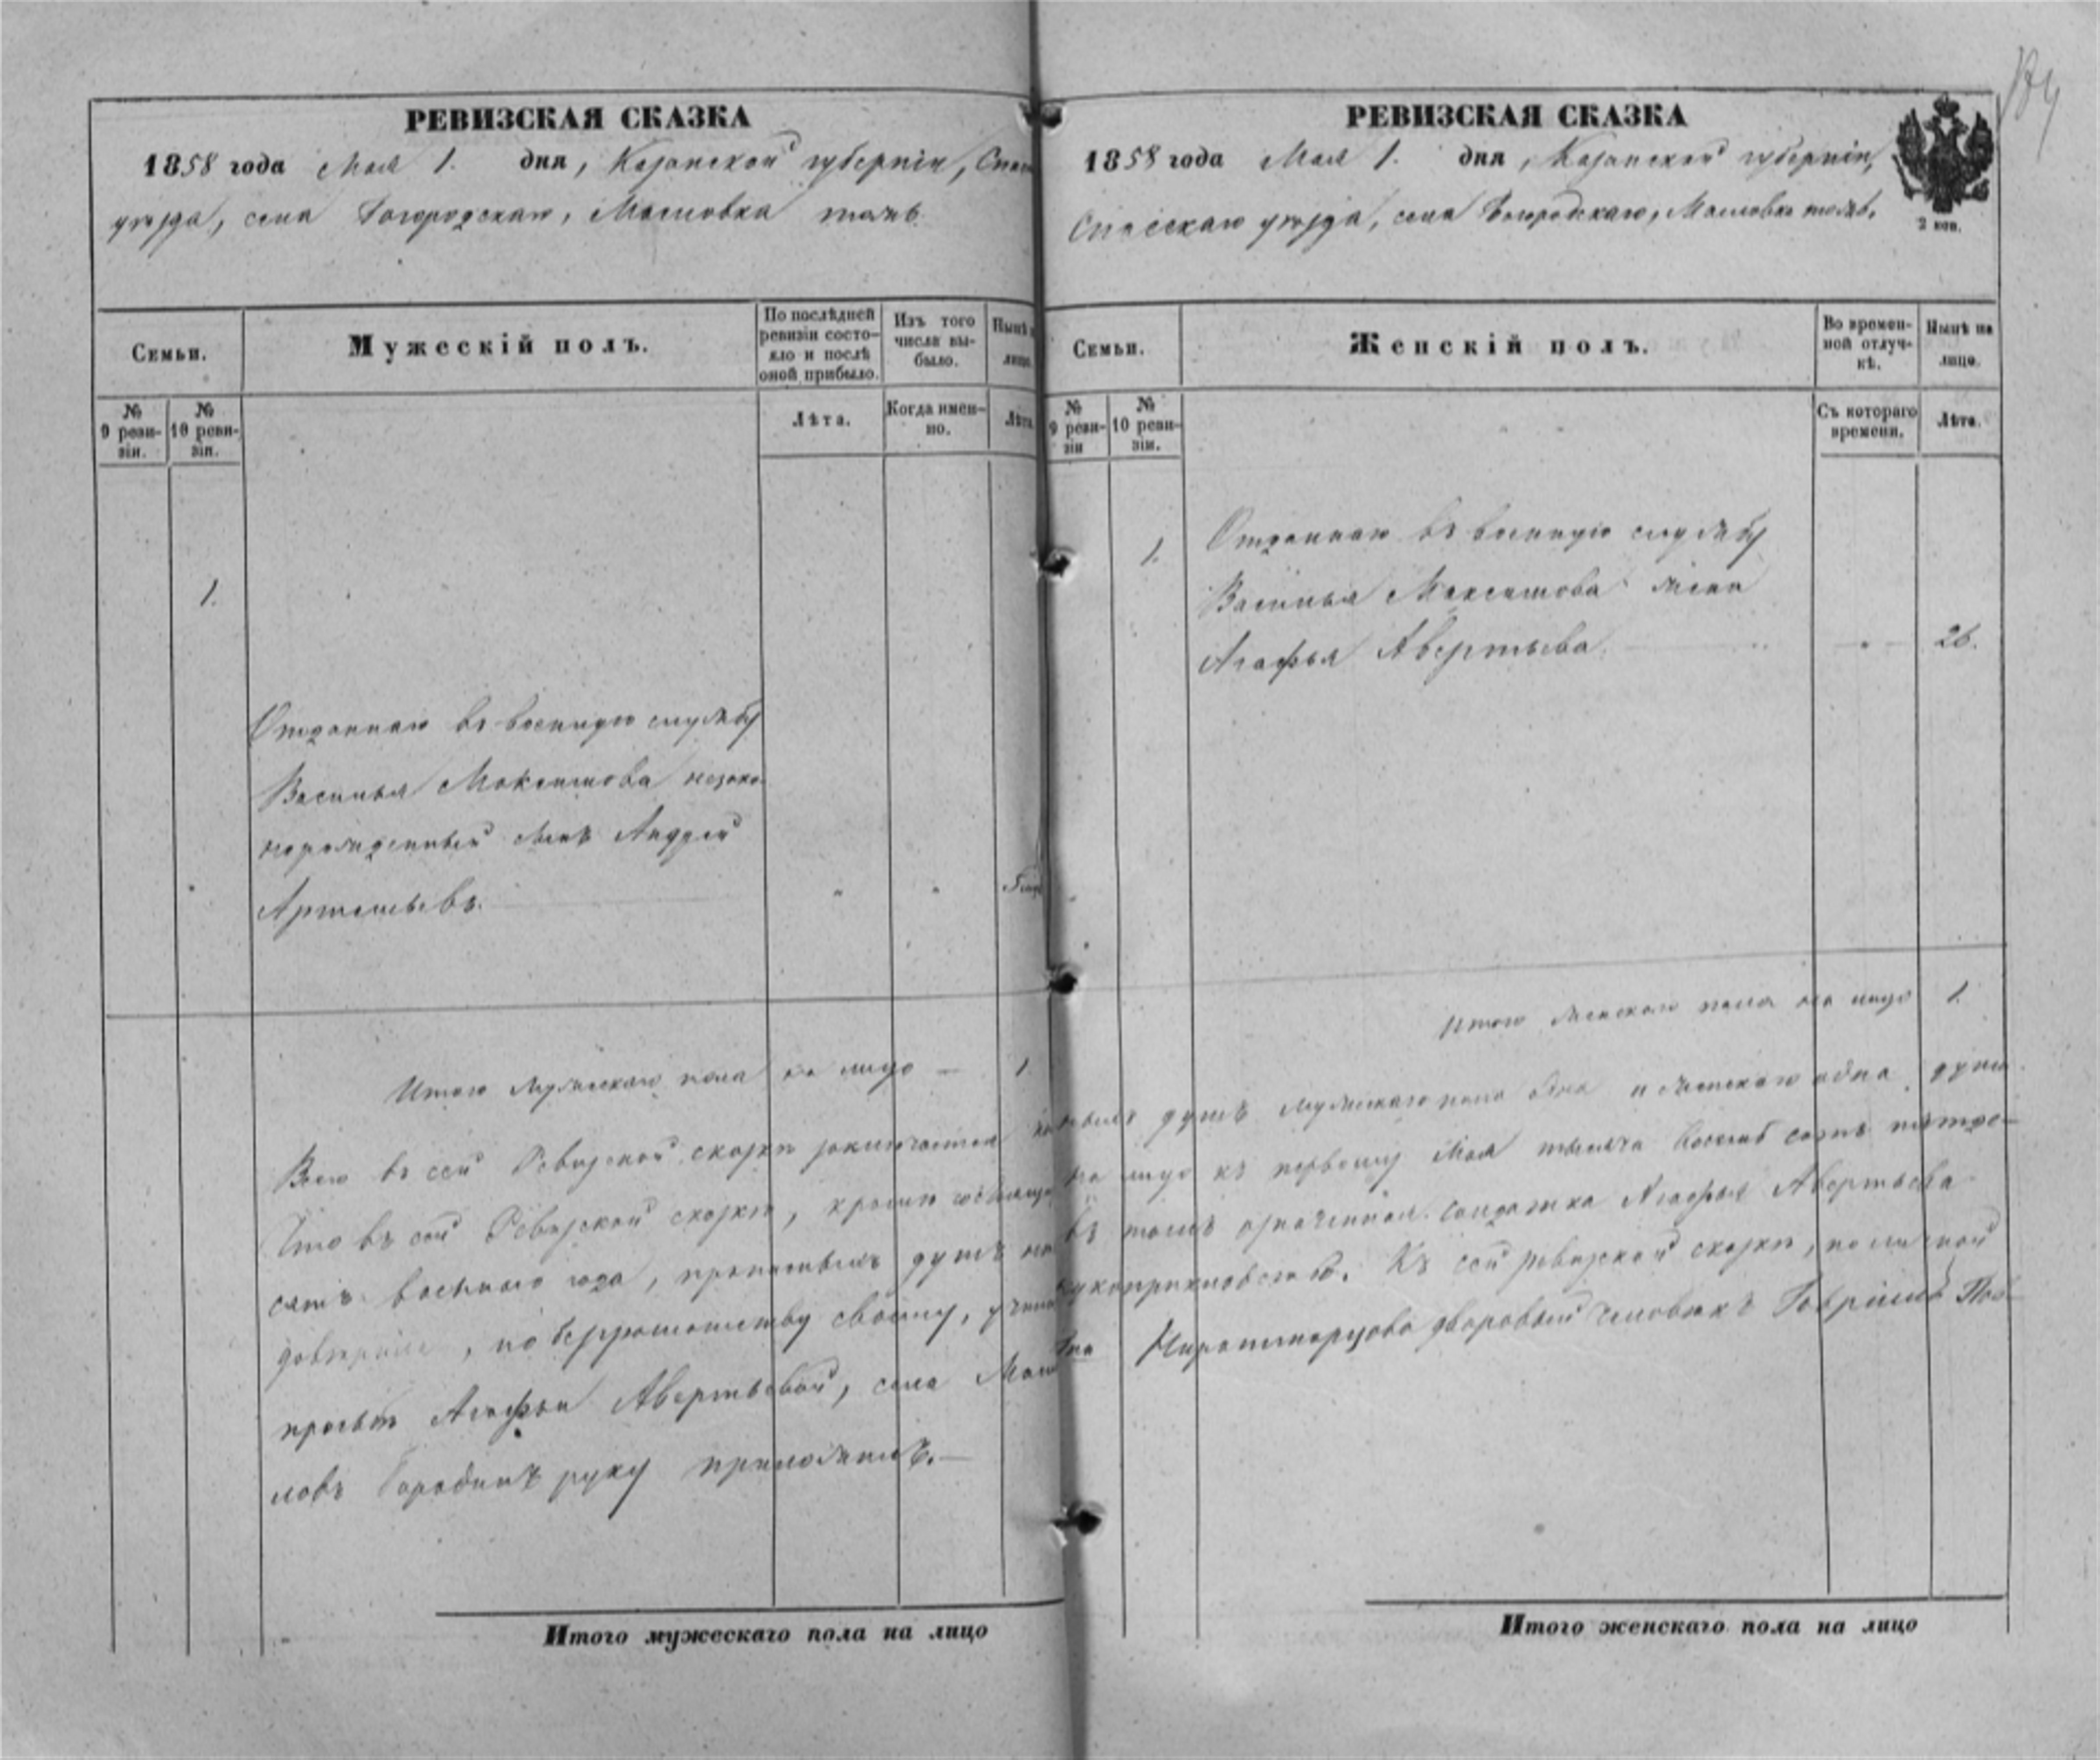 РЕВИЗСКАЯ СКАЗКА
1858 года Мая 1. дня, Казанской губерніи,
уѣзда, села Богородскаго, Масловка тожъ.
Семьи.
Мужескій полъ.
По послѣдней ревизіи состояло и послѣ оной прибыло.
Изъ того числа выбыло.
Нынѣ
лицо.
№ 9 ревизіи.
№ 10 ревизіи.
Лѣта.
Когда именно.
Лѣта.
1.
Отданнаго въ военную службу
Василья Максимова незако-
норожденный сынъ Андрей
Артемьевъ.
Итого мужескаго пола на лицо — 1
РЕВИЗСКАЯ СКАЗКА
1858 года Мая 1. дня, Казанской губерніи,
Спасскаго уѣзда, села Богородскаго, Масловка тожъ.
2 коп.
184
Семьи.
Женскій полъ.
Во временной отлучкѣ.
Нынѣ на лицо.
№ 9 ревизіи
№ 10 ревизіи.
Съ котораго времени.
Лѣта.
1.
Отданнаго въ военную службу
Василья Максимова жена
Агафья Аверьтьева. 26.
Итого женскаго пола на лицо 1.
Всего въ сей Ревизской сказкѣ заключается душъ мужескаго пола одна и женскаго одна душа
Что въ сей Ревизской сказкѣ, кромѣ на лицо къ первому Мая тысяча восемь сотъ пятьде-
сятъ восьмаго года, прописныхъ душъ въ томъ означенная солдатка Агафья Аверьтьева
довѣріе, по безграмотству своему, рукоприкладство. Къ сей ревизской сказкѣ, по личной
прозьбѣ Агафьи Аверьтьевой, села дворовый человѣкъ Гаврилъ Пав-
ловъ Бородинъ руку приложилъ.—
Итого мужескаго пола на лицо
Итого женскаго пола на лицо